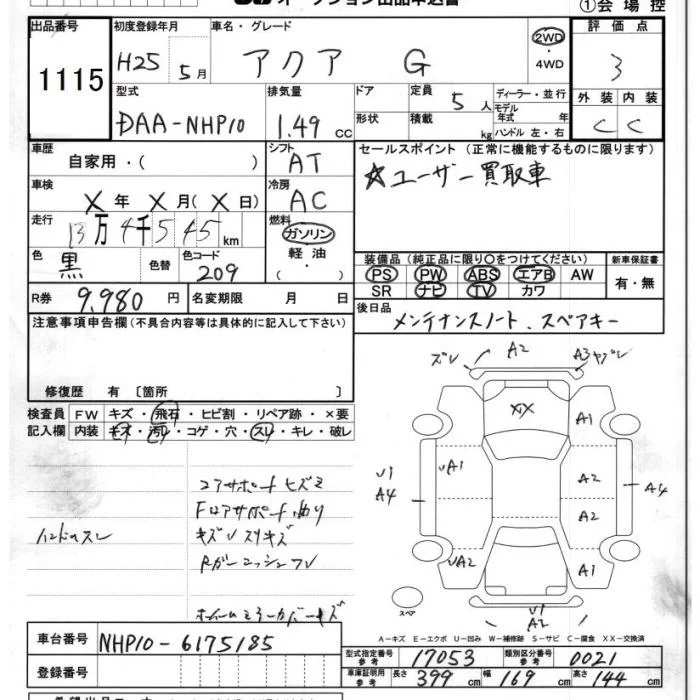 ①会場控
出品番号 初度登録年月 車名・グレード 2WD 評価点
1115 H25 5月 アクア G 4WD 3
型式 排気量 ドア 定員 5人 ディーラー・並行 外装 内装
DAA-NHP10 1.49cc 形状 積載 kg モデル年式 年 ハンドル 左・右 C C
車歴 自家用・( ) シフト AT セールスポイント (正常に機能するものに限ります)
車検 X年 X月(X日) 冷房 AC ☆ユーザー買取車
走行 13万4千545km 燃料 ガソリン
軽油
( ・ )
色 黒 色替 色コード 209 装備品 (純正品に限り○をつけてください) 新車保証書
PS PW ABS エアB AW 有・無
R券 9,980円 名変期限 月 日 SR ナビ TV カワ
注意事項申告欄(不具合内容等は具体的に記入して下さい) 後日品 メンテナンスノート、スペアキー
修復歴 有 [箇所 ]
検査員 FW キズ・飛石・ヒビ割・リペア跡・×要
記入欄 内装 キズ・汚レ・コゲ・穴・スレ・キレ・破レ
ズレ A2 A3ヤブレ
XX A1
U1 A4 UA1 A2 A4
A2
UA2 A1
スペア U1 A2
コアサポートヒズミ
Fロアサポート曲り
ハンドルスレ キズUスリキズ
A-キズ E-エクボ U-凹み W-補修跡 S-サビ C-腐食 XX-交換済
車台番号 NHP10-6175185 型式指定番号 参考 17053 類別区分番号 参考 0021
登録番号 車庫証明用 参考 長さ 399cm 幅 169cm 高さ 144cm